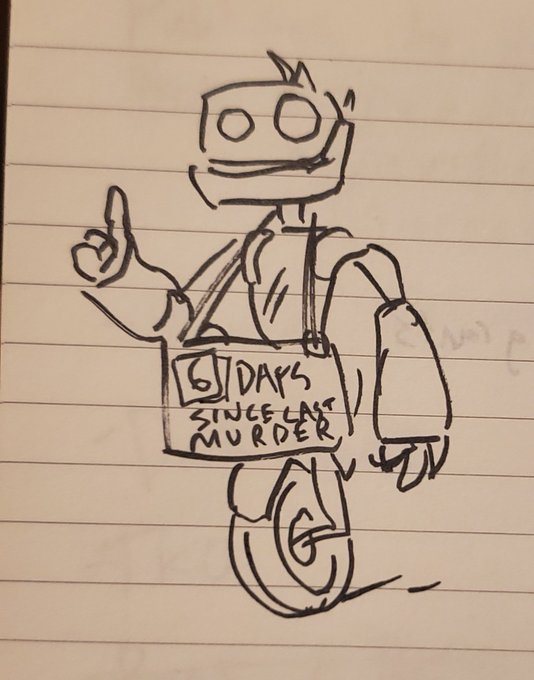 6 DAYS
SINCE LAST
MURDER